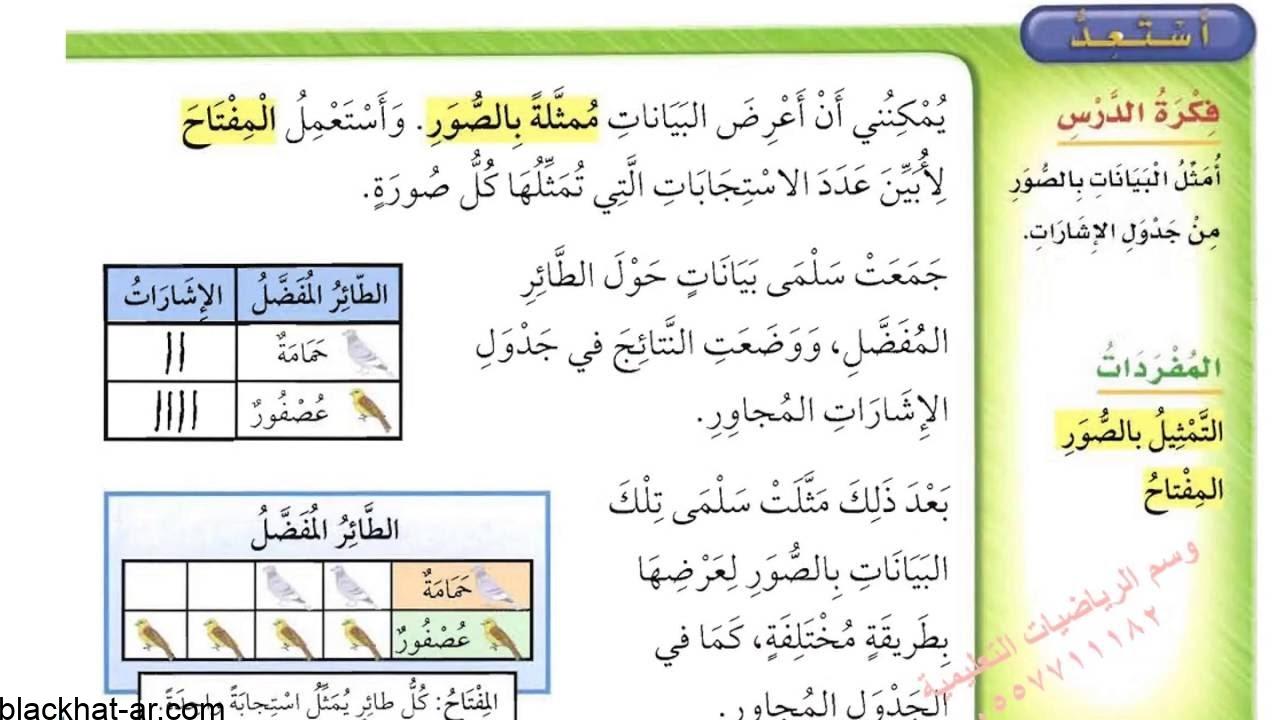 أَسْتَعِدُّ
فِكْرَةُ الدَّرْسِ
أُمَثِّلُ الْبَيَانَاتِ بِالصُّوَرِ
مِنْ جَدْوَلِ الإِشَارَاتِ.
المُفْرَدَاتُ
التَّمْثِيلُ بالصُّوَرِ
المِفْتاحُ
يُمْكِنُني أَنْ أَعْرِضَ البَيَاناتِ مُمثَّلَةً بِالصُّوَرِ. وَأَسْتَعْمِلُ الْمِفْتَاحَ
لِأُبَيِّنَ عَدَدَ الاسْتِجَابَاتِ الَّتِي تُمَثِّلُهَا كُلُّ صُورَةٍ.
جَمَعَتْ سَلْمَى بَيَانَاتٍ حَوْلَ الطَّائِرِ
المُفَضَّلِ، وَوَضَعَتِ النَّتائِجَ في جَدْوَلِ
الإِشَارَاتِ المُجاوِرِ.
الطَّائِرُ المُفَضَّلُ الإِشَارَاتُ
حَمَامَةٌ
عُصْفُورٌ
بَعْدَ ذَلِكَ مَثَّلَتْ سَلْمَى تِلْكَ
البَيَانَاتِ بِالصُّوَرِ لِعَرْضِهَا
بِطَرِيقَةٍ مُخْتَلِفَةٍ، كَمَا في
الجَدْوَلِ المُجاورِ.
الطَّائِرُ المُفَضَّلُ
حَمَامَةٌ
عُصْفُورٌ
المِفْتَاحُ: كُلُّ طائِرٍ يُمَثِّلُ اسْتِجابَةً واحِدَةً.
وسم الرياضيات التعليمية
blackhat-ar.com